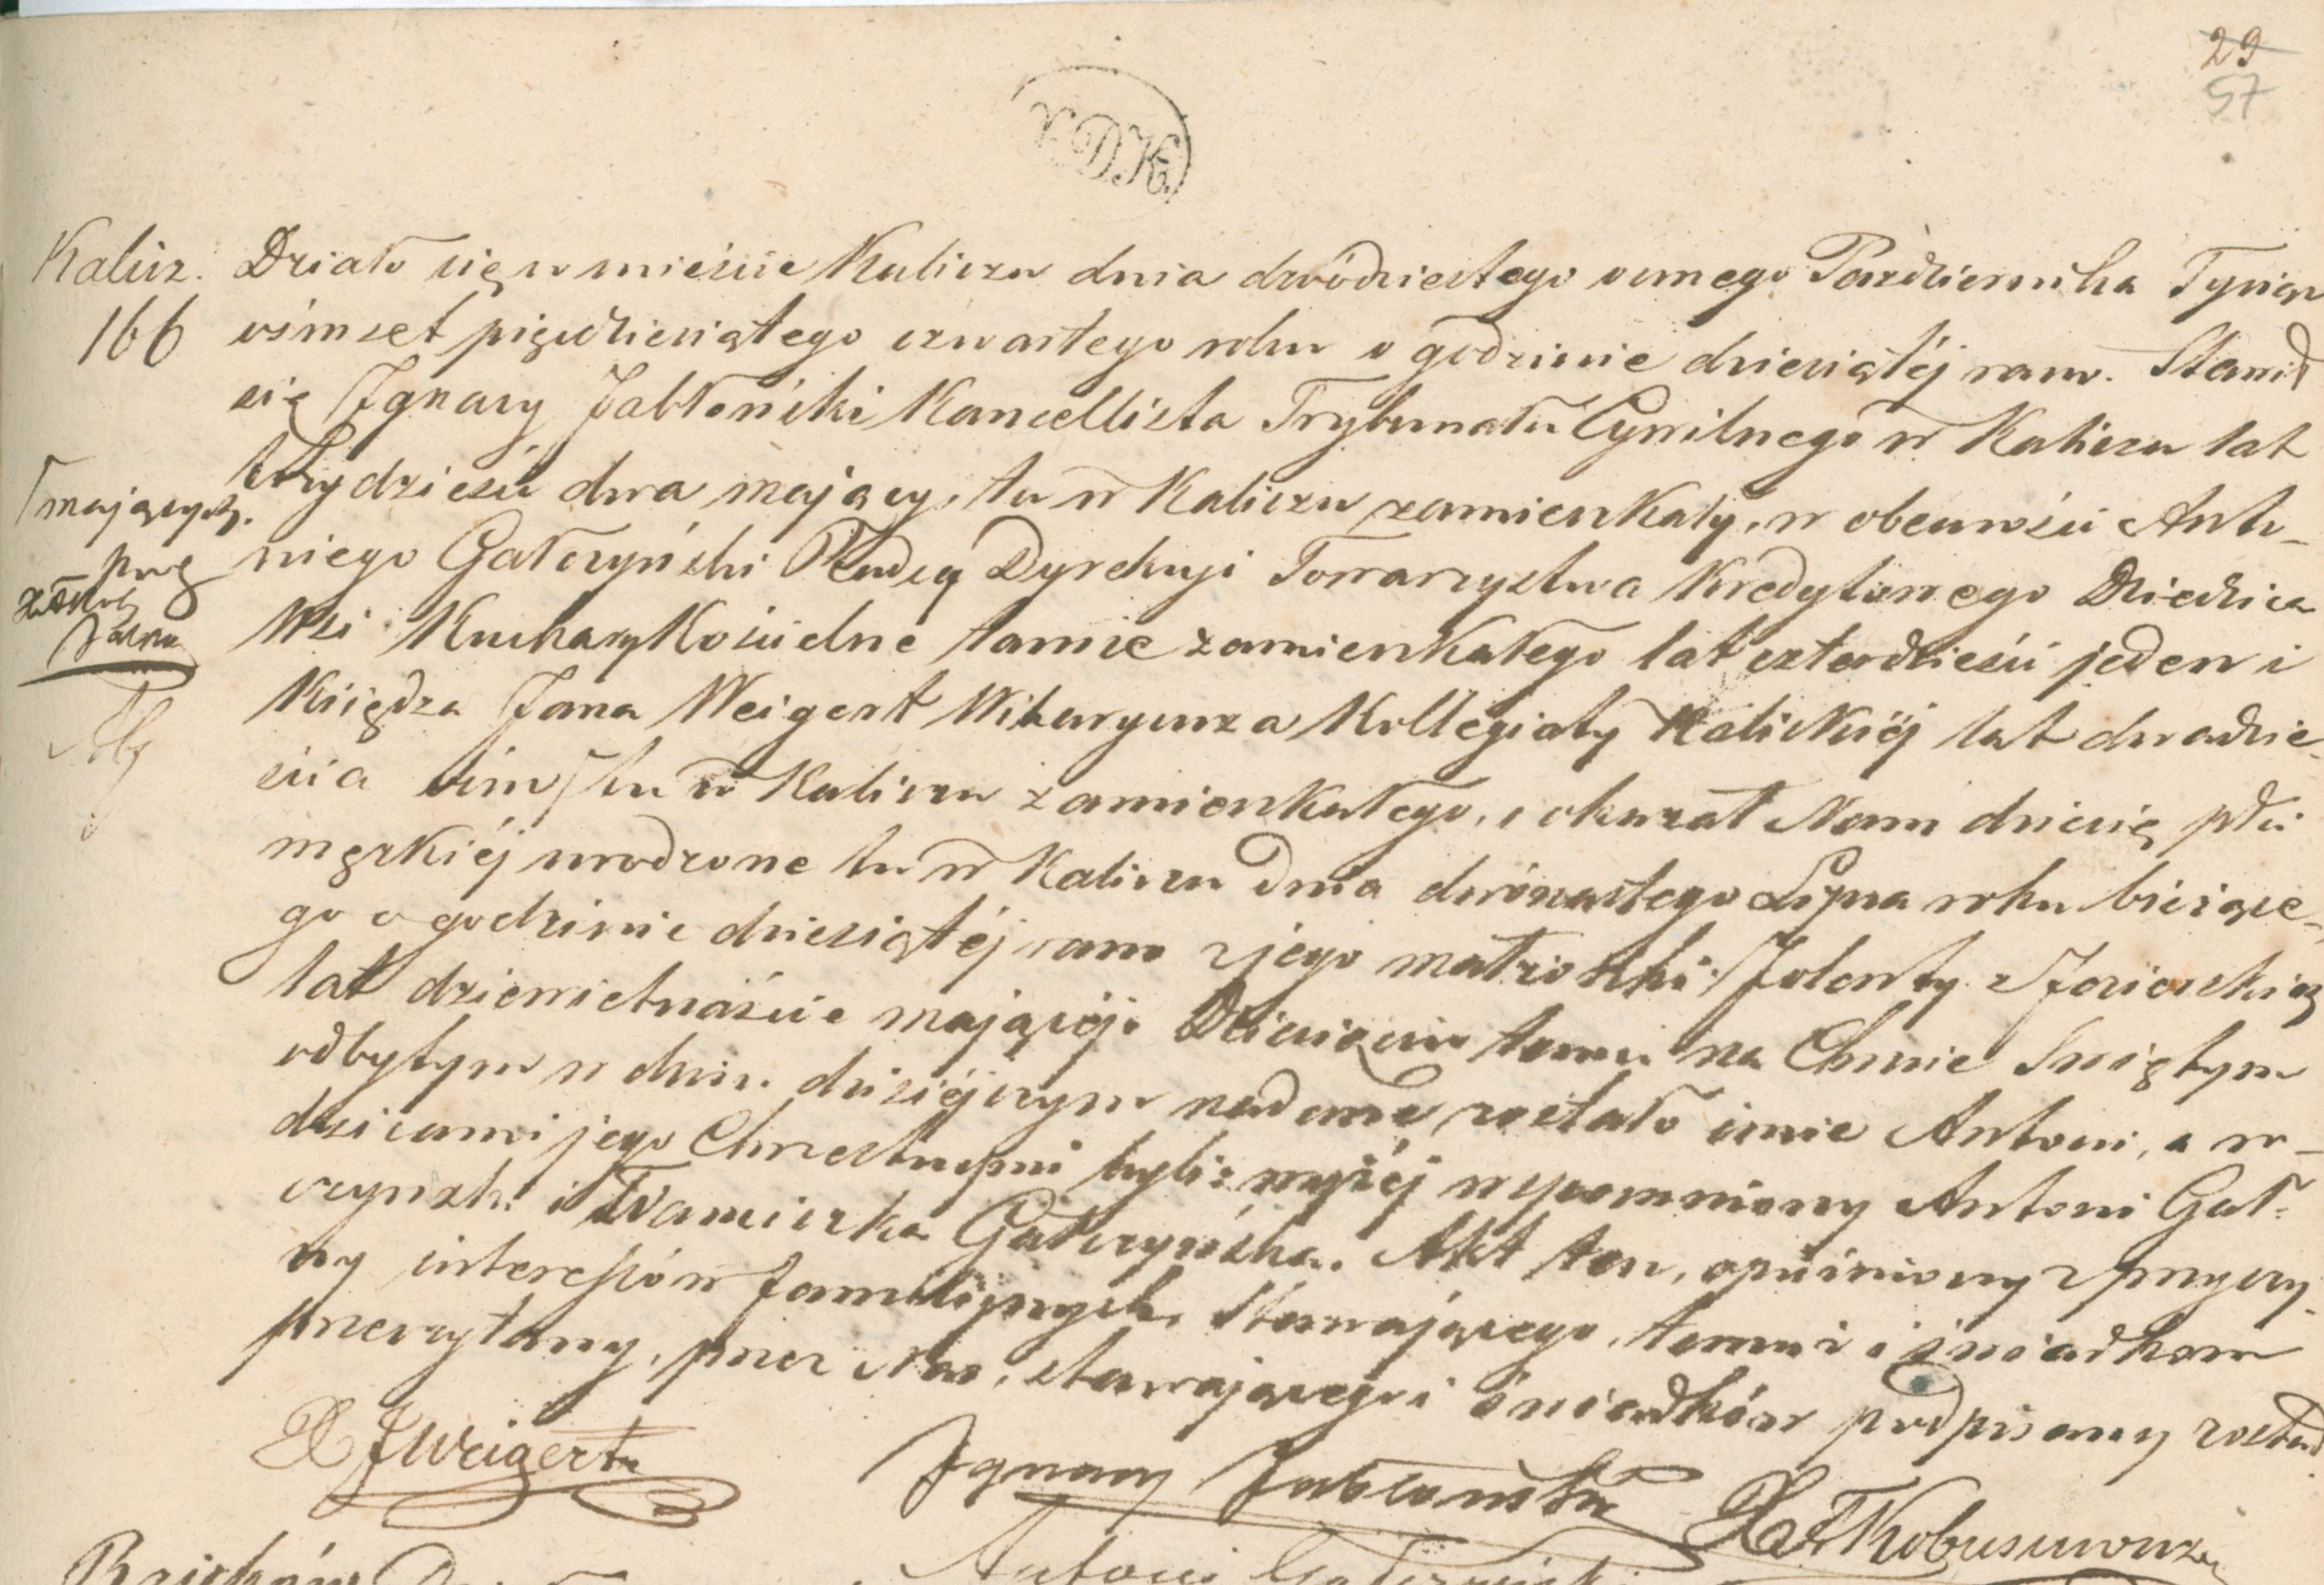 29
57
KDK
Kalisz. Działo się w mieście Kaliszu dnia dwódziestego osmego Pazdziernika Tysiąc
166 ośmset pięćdziesiątego czwartego roku o godzinie dziesiątéj rano. Stawił
się Ignacy Jabłoński Kancellista Trybunału Cywilnego w Kaliszu lat
trzydzieści dwa mający, tu w Kaliszu zamieszkały, w obecności Anto-
mających.
niego Gałczyński Radcą Dyrekcyi Towarzystwa Kredytowego Dziedzica
Wsi Kuchary Kościelne tamie zamieszkałego lat czterdzieści jeden i
Księdza Jana Weigert Wikaryusza Kollegiaty Kaliskiéj lat dwadzie-
ścia ośm tu w Kaliszu zamieszkałego, i okazał Nam dziecię płci
męzkiéj urodzone tu w Kaliszu dnia dwónastego Lipca roku bieżące-
go o godzinie dziesiątéj rano z jego małżonki Jolenty z
lat dziewietnaście mającéj. Dziecięciu temu na Chrzcie Swiętym
odbytym w dniu dzisiéjszym nadane zostało imie Antoni, a ro-
dzicami jego Chrzestnymi byli: wyżéj wspomniony Antoni Gał-
czyński i Franciszka Gałczyńska. Akt ten, opóźniony z przyczy-
ny interessów familijnych Stawającego, temuż i świadkom
przeczytany, przez Nas, stawającego i świadków podpisany został
X J Weigert
Ignacy Jabłoński
Antoni Gałczyński